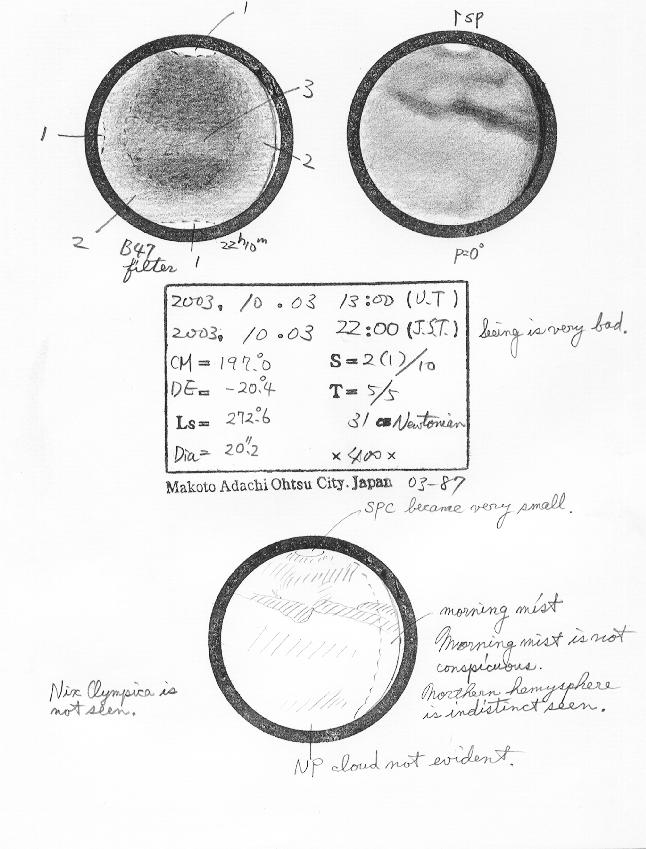 1
↑SP
1
3
2
2
B47
filter
22h10m
1
P=0°
2003. 10 . 03 13:00 (U.T)
2003. 10 . 03 22:00 (J.S.T.)
Seeing is very bad.
CM = 197.°0 S = 2(1)/10
DE = -20.°4 T = 5/5
Ls = 272.°6 31 cm Newtonian
Dia = 20."2 × 400 ×
Makoto Adachi Ohtsu City. Japan 03-87
SPC became very small.
morning mist
Morning mist is not
conspicuous.
Northern hemysphere
is indistinct seen.
Nix Olympica is
not seen.
NP cloud not evident.